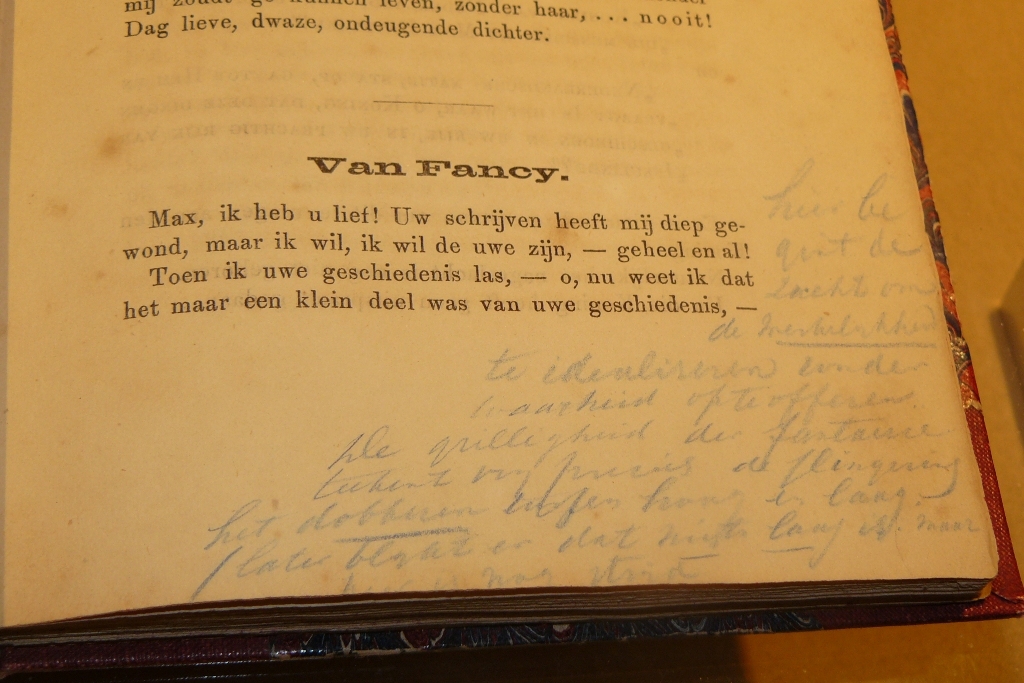 mij zoudt ge kunnen leven, zonder haar, ... nooit!
Dag lieve, dwaze, ondeugende dichter.
Van Fancy.
Max, ik heb u lief! Uw schrijven heeft mij diep ge-
wond, maar ik wil, ik wil de uwe zijn, — geheel en al!
Toen ik uwe geschiedenis las, — o, nu weet ik dat
het maar een klein deel was van uwe geschiedenis, —
hier be
de
zucht om
de werkelijkheid
te idealiseren zonder
waarheid op te offeren.
De grilligheid der fantaisie
tekent de slingering
het dobberen tussen hoog en laag
(later blykt er dat laag is. maar
hier is nog strijd